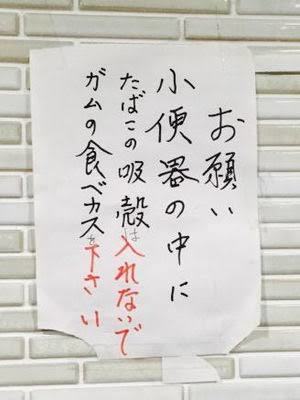 お願い
小便器の中に
たばこの吸殻は入れないで
ガムの食べカスを下さい